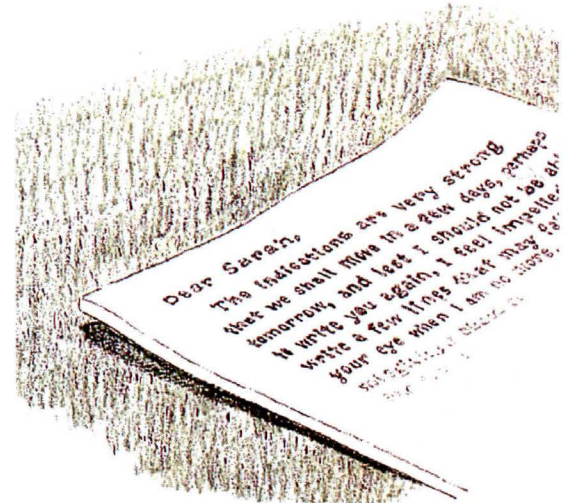 Dear Sarah,
The indications are very strong
that we shall move in a few days, perhaps
tomorrow, and lest I should not be
to write you again, I feel
write a few lines that may
your eye when I am no more.